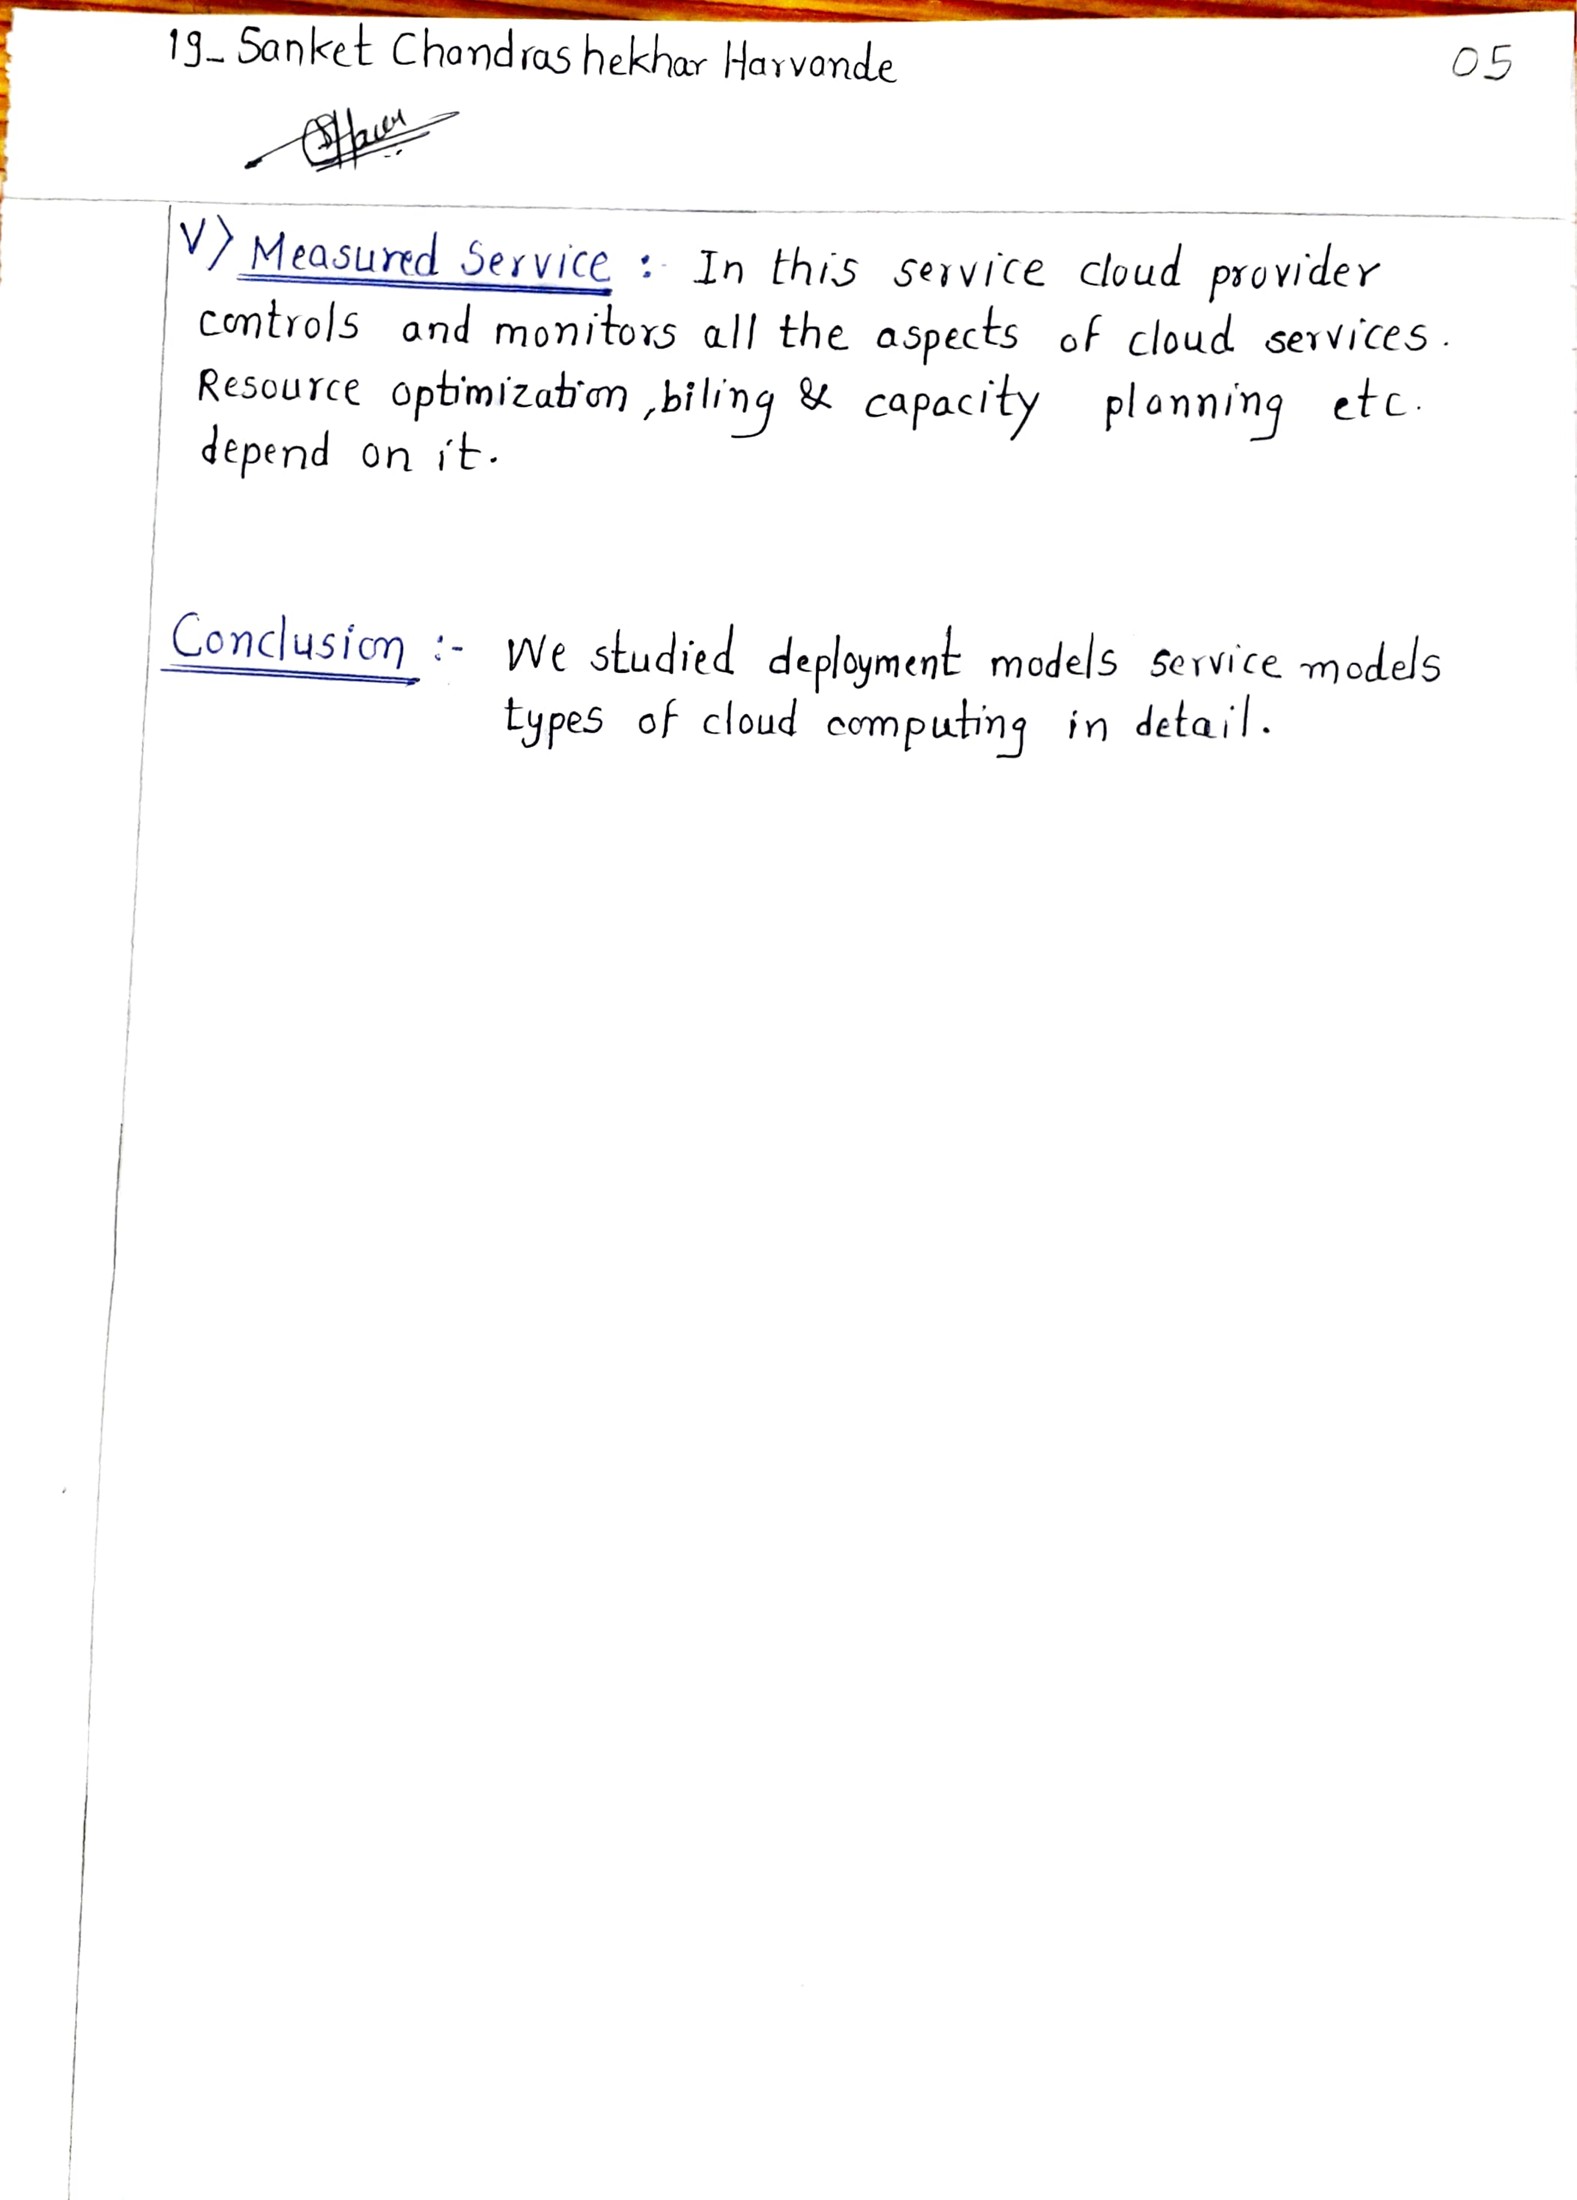 19_ Sanket Chandrashekhar Harvande
05
V) Measured Service :- In this service cloud provider
controls and monitors all the aspects of cloud services.
Resource optimization, biling & capacity planning etc.
depend on it.
Conclusion :- We studied deployment models service models
types of cloud computing in detail.